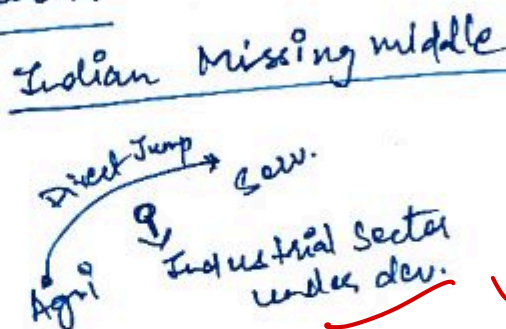 Indian Missing middle
Direct Jump
Serv.
Agri
Industrial Sector
under dev.